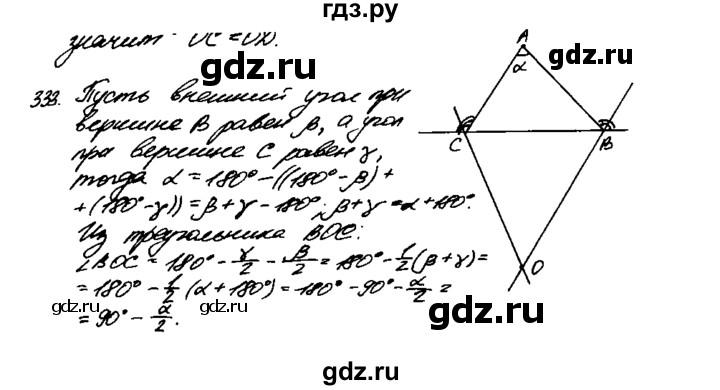 гдз.ру
значит OC = OD.
gdz.ru
gdz.ru
333. Пусть внешний угол при
вершине B равен β, а угол
при вершине C равен γ,
тогда α = 180° − ((180° − β) +
+ (180° − γ)) = β + γ − 180°; β + γ = α + 180°.
Из треугольника BOC:
∠BOC = 180° − γ/2 − β/2 = 180° − 1/2 (β + γ) =
= 180° − 1/2 (α + 180°) = 180° − 90° − α/2 =
= 90° − α/2.
gdz.ru
gdz.ru
gdz.ru
gdz.ru
A
α
C
B
O